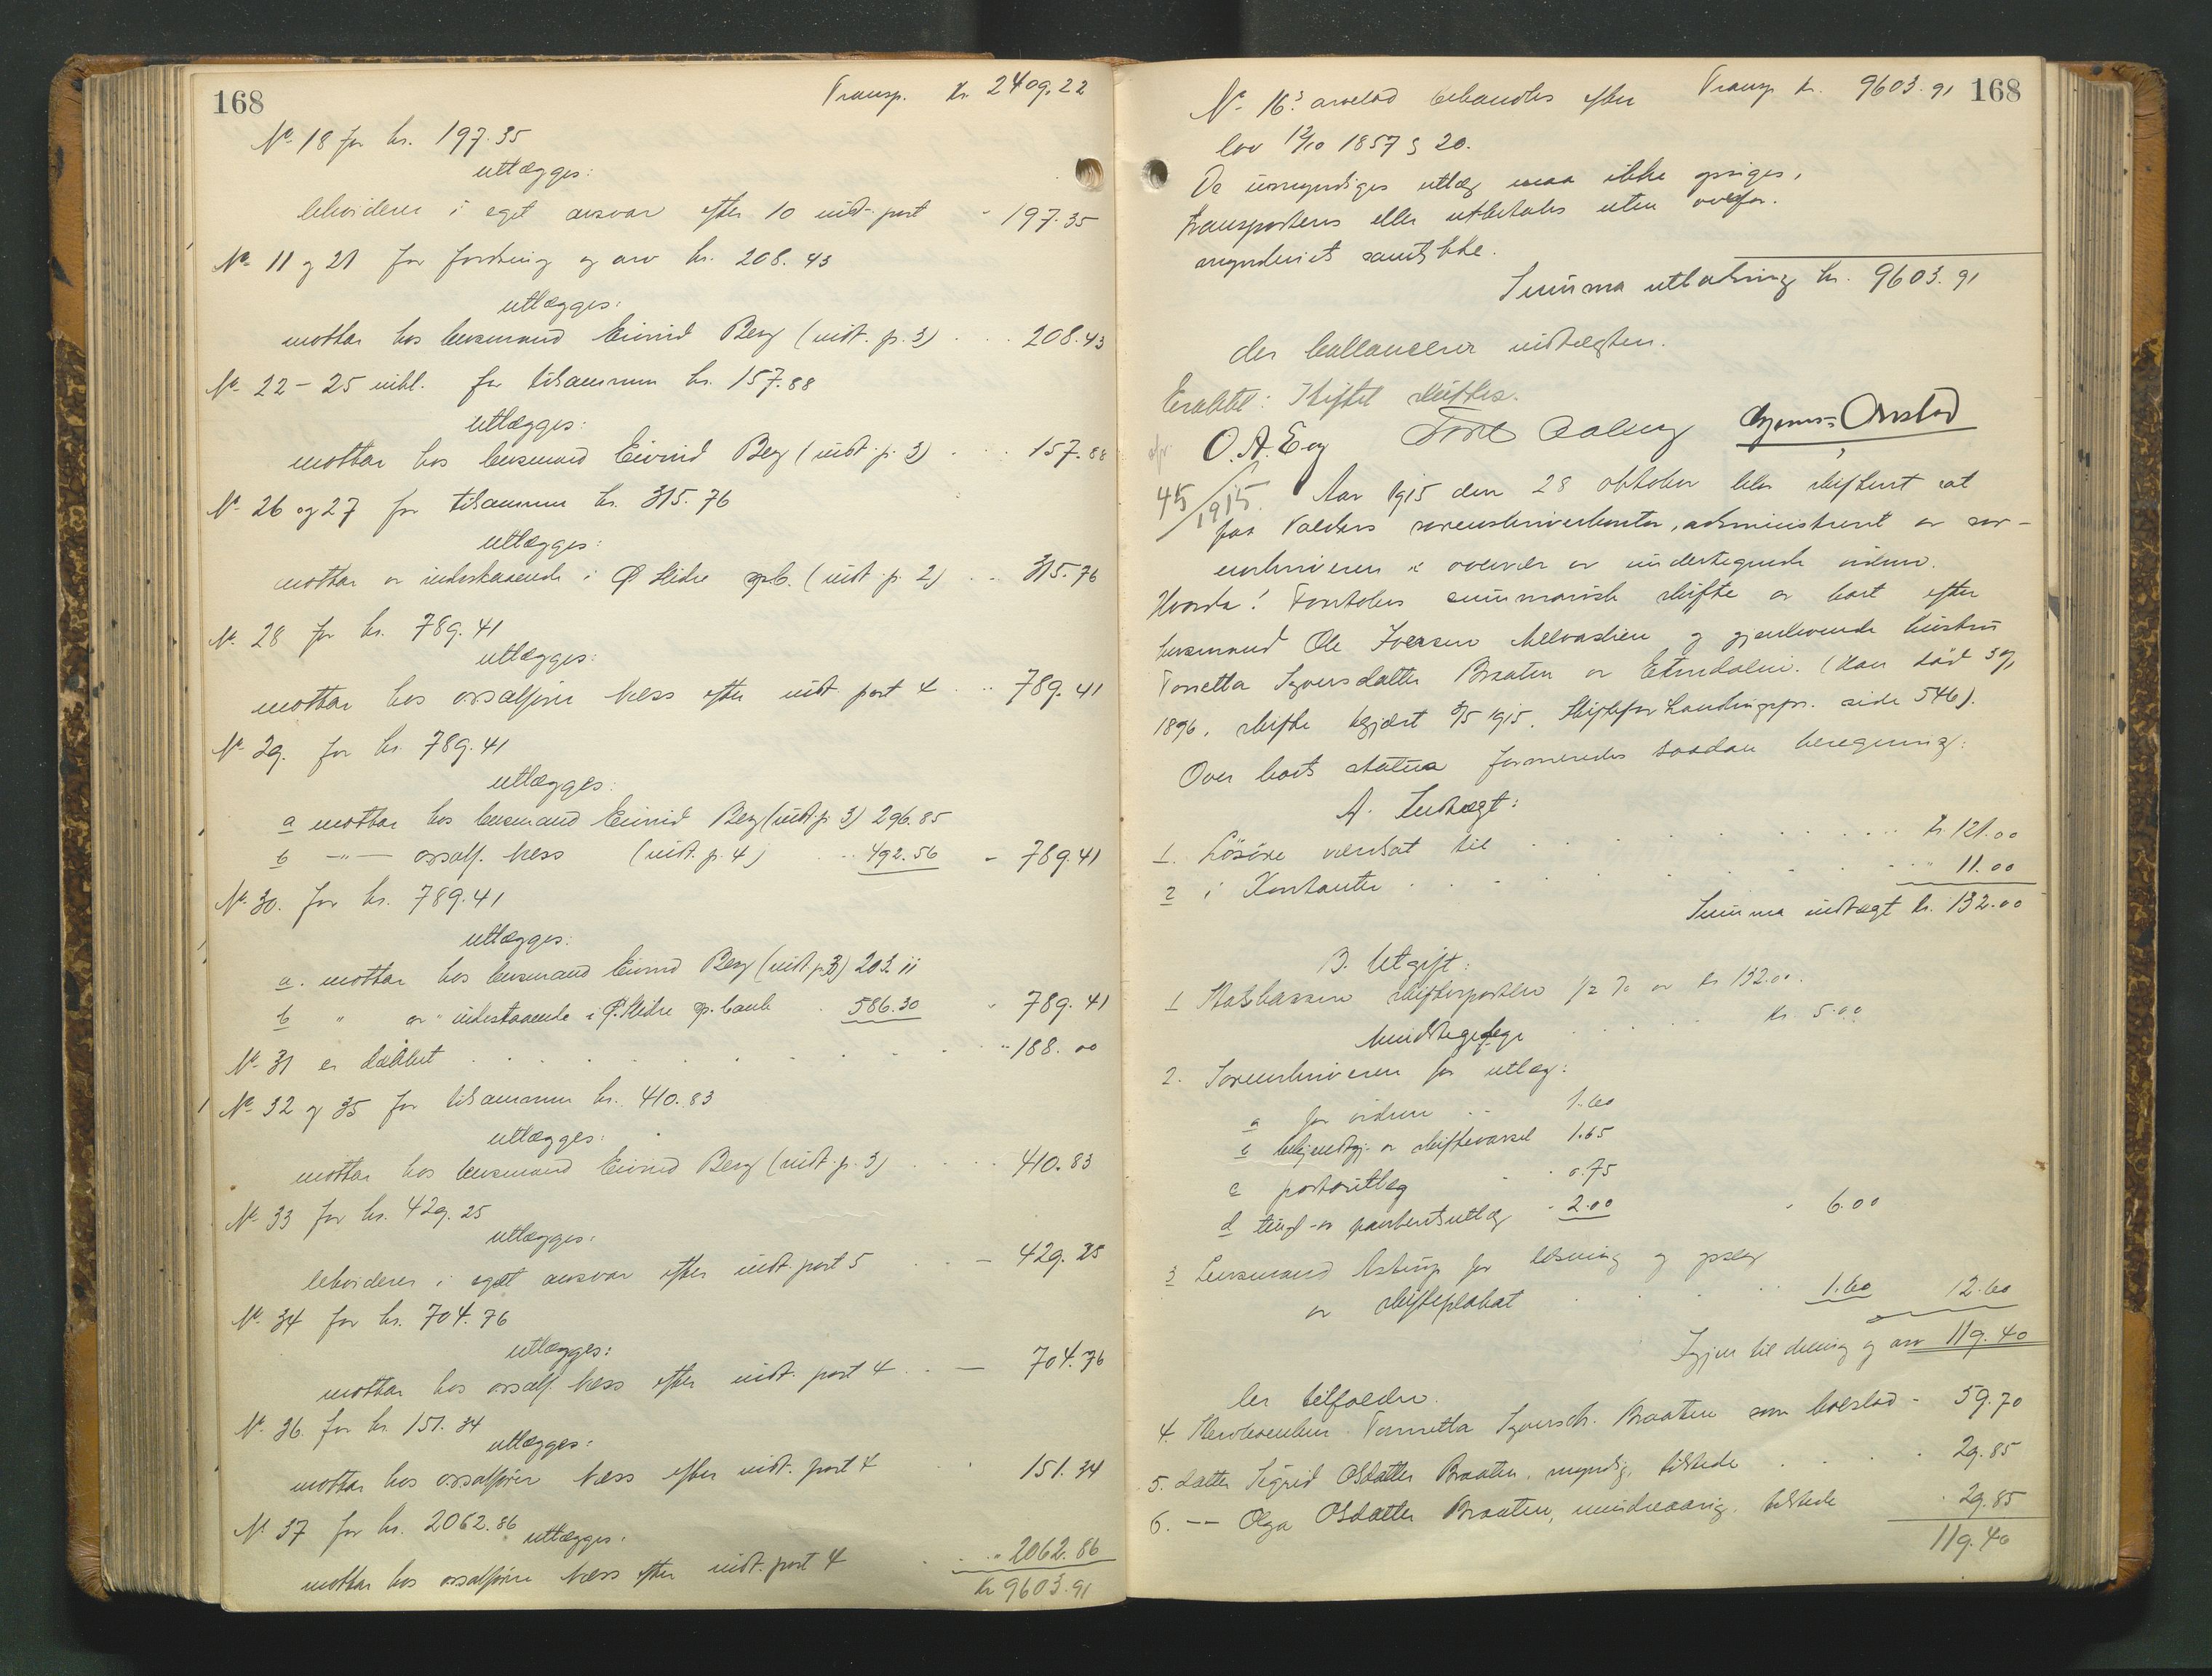 168
Transp. Kr. 2409.22
No 18 for kr. 197.35
utlægges:
likviderer i eget ansvar efter 10 indt. post - 197.35
No 11 og 21 for fordring og arv kr. 208.43
utlægges:
mottar hos lensmand Eivind Berg (indt. p. 3) . . . 208.43
No 22 - 25 inkl. for tilsammen kr. 157.88
utlægges:
mottar hos lensmand Eivind Berg (indt. p. 3) . . . 157.88
No 26 og 27 for tilsammen kr. 315.76
utlægges:
mottar av indestaaende i Ø Slidre spb. (indt. p. 2) . . 315.76
No 28 for kr. 789.41
utlægges:
mottar hos o.r.sakfører Næss efter indt. post 4 . . . 789.41
No 29. for kr. 789.41
utlægges:
a mottar hos lensmand Eivind Berg (indt. p. 3) 296.85
b -"- o.r.sakf. Næss (indt. p. 4) . . 492.56 - 789.41
No 30. for kr. 789.41
utlægges:
a. mottar hos lensmand Eivind Berg (indt. p. 3) 203.11
b " av indestaaende i Ø. Slidre sp.bank . 586.30 " 789.41
No 31 er dækket . . . . . . . . . " 188.00
No 32 og 35 for tilsammen kr. 410.83
utlægges:
mottar hos lensmand Eivind Berg (indt. p. 3) . . . . 410.83
No 33 for kr. 429.25
utlægges:
likviderer i eget ansvar efter indt. post 5 . . - 429.25
No 34 for kr. 704.76
utlægges:
mottar hos o.r.sakf. Næss efter indt. post 4 . . - 704.76
No 36. for kr 151.34
utlægges:
mottar hos o.r.sakfører Næss efter indt. post 4 . . 151.34
No 37 for kr. 2062.86
utlægges.
mottar hos o.r.sakfører Næss efter indt. post 4 . . " 2062.86
Kr 9603.91
168
No 16s arvelod behandles efter Transp kr. 9603.91
lov 12/10 1857 § 20.
De umyndiges utlæg maa ikke opsiges,
transporteres eller utbetales uten overfor-
mynderiets samtykke.
Summa utlodning kr. 9603.91
der ballancerer indtægten.
Erakttet: Skiftet sluttes.
O. A. Eug Tore Aaberg Bjarne Onstad
45/1915.
Aar 1915 den 28 oktober blev skifteret sat
paa Valdres sorenskriverkontor, administreret av sor-
enskriveren i overvær av undertegnede vidner.
Hvorda! Foretokes summarisk skifte av boet efter
husmand Ole Iversen Melvaslien og gjenlevende hustru
Tonetta Syversdatter Braaten av Etnedalen. (Han død 3/1
1896, skifte begjært 3/5 1915. Skifteforhandlingspr. side 546).
Over boets status formeredes saadan beregning:
A. Indtægt:
1. Løsøre værdsat til . . . . . . . . kr. 121.00
2 i Kontanter . . . . . . . . " 11.00
Summa indtægt kr. 132.00
B. Utgift:
1 Statskassen skifteportlen 1/2 % av kr 132.00.
Mindstegebyr . . . . . kr. 5.00
2. Sorenskriveren for utlæg:
a for vidner . . 1.60
b bekjendtgj. av skiftevarsel 1.65
c portoutlæg . 0.75
d tingl. av panterets utlæg - 2.00 - 6.00
3 Lensmand Astrup for læsning og opslag
av skifteplakat . . . . . 1.60 12.60
Igjen til deling og arv 119.40
der tilfalder.
4. Storboenken Tonetta Syversdr. Braaten som boeslod - 59.70
5. datter Sigrid Olsdatter Braaten, myndig, tilstede . . . 29.85
6. -- Olga Olsdatter Braaten, mindreaarig, tilstede . 29.85
119.40